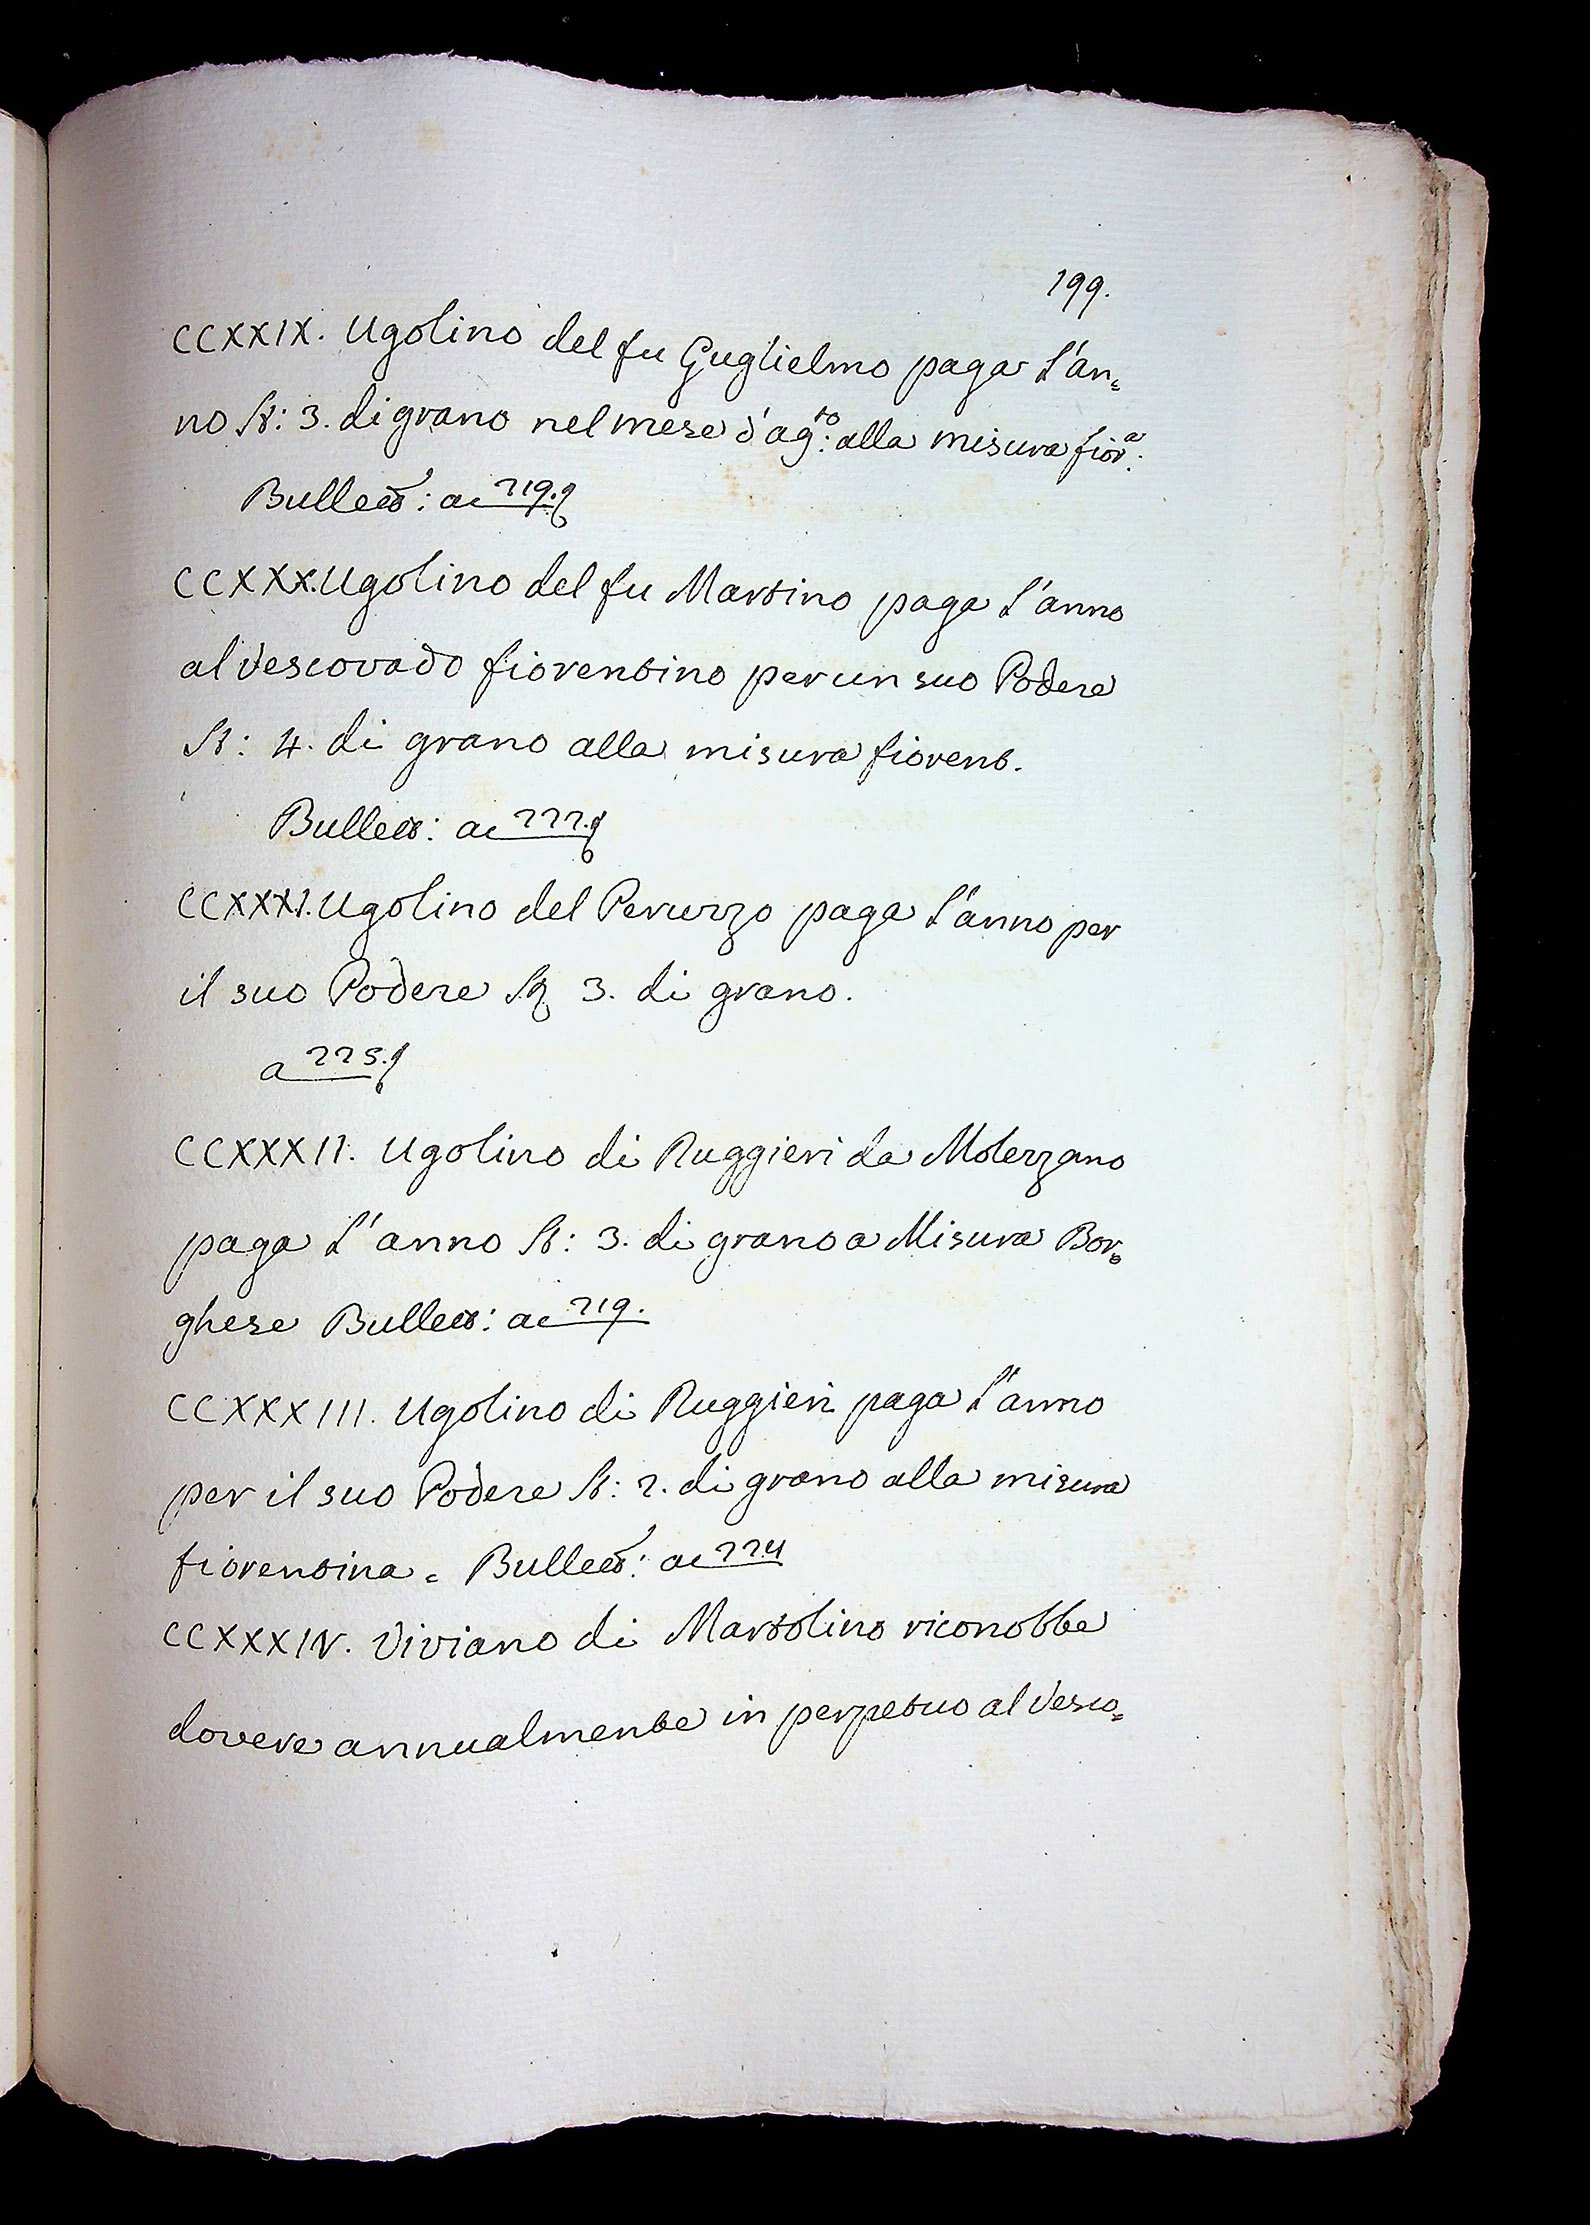 199.
CCXXIX. Ugolino del fu Guglielmo paga l'an=
no St: 3. di grano nel mese d'ag.to: alla misura fior.a:
Bullett: ac 219.
CCXXX. Ugolino del fu Martino paga l'anno
al Vescovado fiorentino per un suo Podere
St: 4. di grano alla misura fiorent.
Bullett: ac 222.
CCXXXI. Ugolino del Peruzzo paga l'anno per
il suo Podere St 3. di grano.
a 225.
CCXXXII. Ugolino di Ruggieri da Molezzano
paga l'anno St: 3. di grano a Misura Bor=
ghese Bullett: ac 219.
CCXXXIII. Ugolino di Ruggieri paga l'anno
per il suo Podere St: 2. di grano alla misura
fiorentina = Bullett: ac 224
CCXXXIV. Viviano di Martolino riconobbe
dovere annualmente in perpetuo al Vesco=